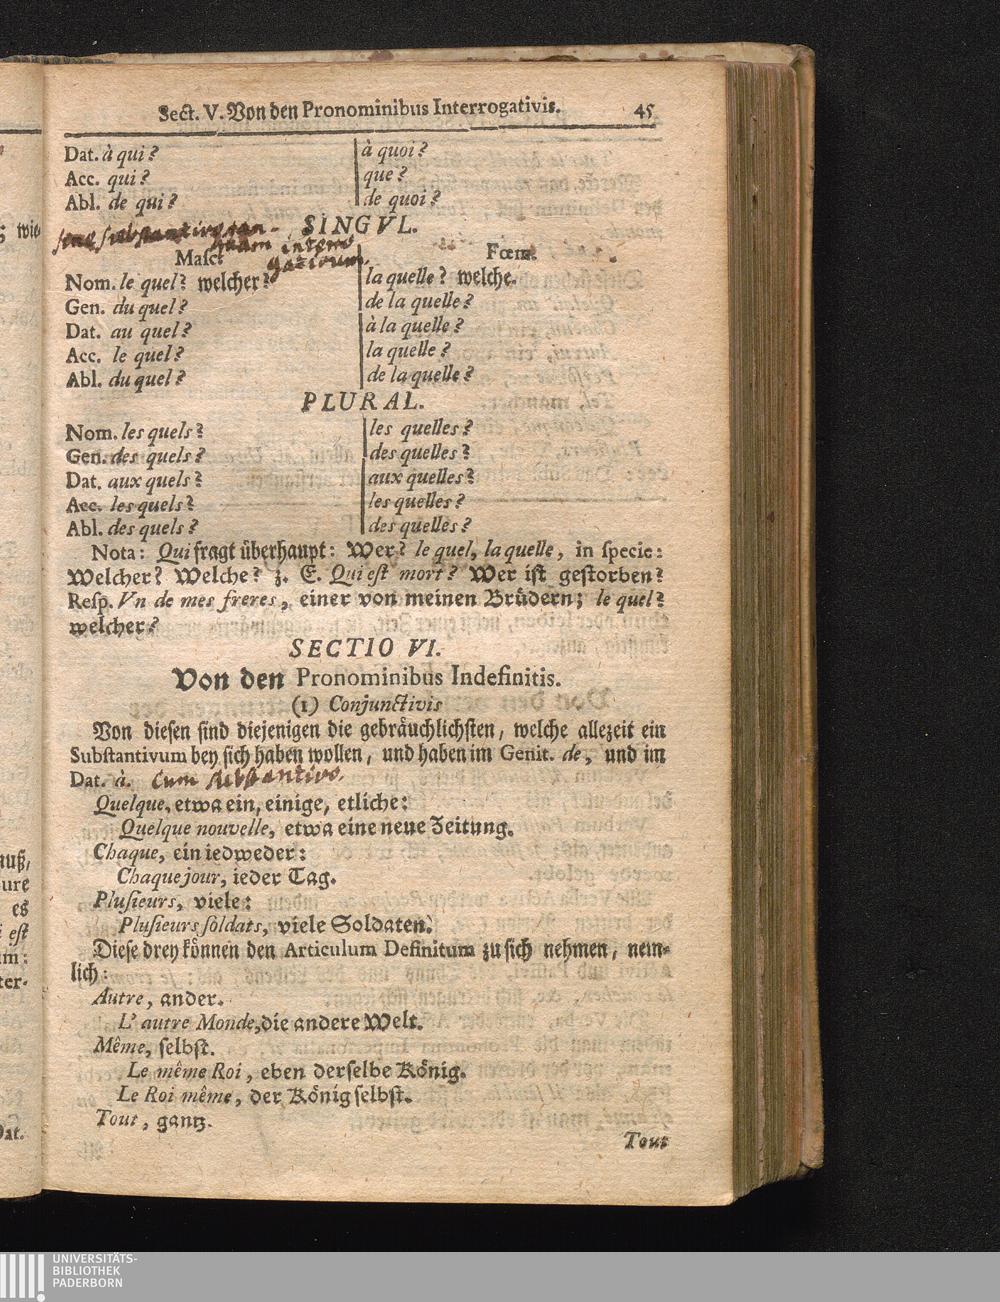 Sect. V. Von den Pronominibus Interrogativis. 45
Dat. à qui? à quoi?
Acc. qui? que?
Abl. de qui? de quoi?
SINGVL.
sine substantivo tan-
quam interro
gativum.
Masc. Fœm.
Nom. le quel? welcher? la quelle? welche.
Gen. du quel? de la quelle?
Dat. au quel? à la quelle?
Acc. le quel? la quelle?
Abl. du quel? de la quelle?
PLURAL.
Nom. les quels? les quelles?
Gen. des quels? des quelles?
Dat. aux quels? aux quelles?
Acc. les quels? les quelles?
Abl. des quels? des quelles?
Nota: Qui fragt überhaupt: Wer? le quel, la quelle, in specie:
Welcher? Welche? z. E. Qui est mort? Wer ist gestorben?
Resp. Vn de mes freres, einer von meinen Brüdern; le quel?
welcher?
SECTIO VI.
Von den Pronominibus Indefinitis.
(1) Conjunctivis
Von diesen sind diejenigen die gebräuchlichsten, welche allezeit ein
Substantivum bey sich haben wollen, und haben im Genit. de, und im
Dat. à. Cum substantivo.
Quelque, etwa ein, einige, etliche:
Quelque nouvelle, etwa eine neue Zeitung.
Chaque, ein iedweder:
Chaque jour, ieder Tag.
Plusieurs, viele:
Plusieurs soldats, viele Soldaten.
Diese drey können den Articulum Definitum zu sich nehmen, nem-
lich:
Autre, ander.
L' autre Monde, die andere Welt.
Même, selbst.
Le même Roi, eben derselbe König.
Le Roi même, der König selbst.
Tout, gantz.
Tout
wie
muß,
ure
es
est
m:
ter-
Dat.
UNIVERSITÄTS-
BIBLIOTHEK
PADERBORN